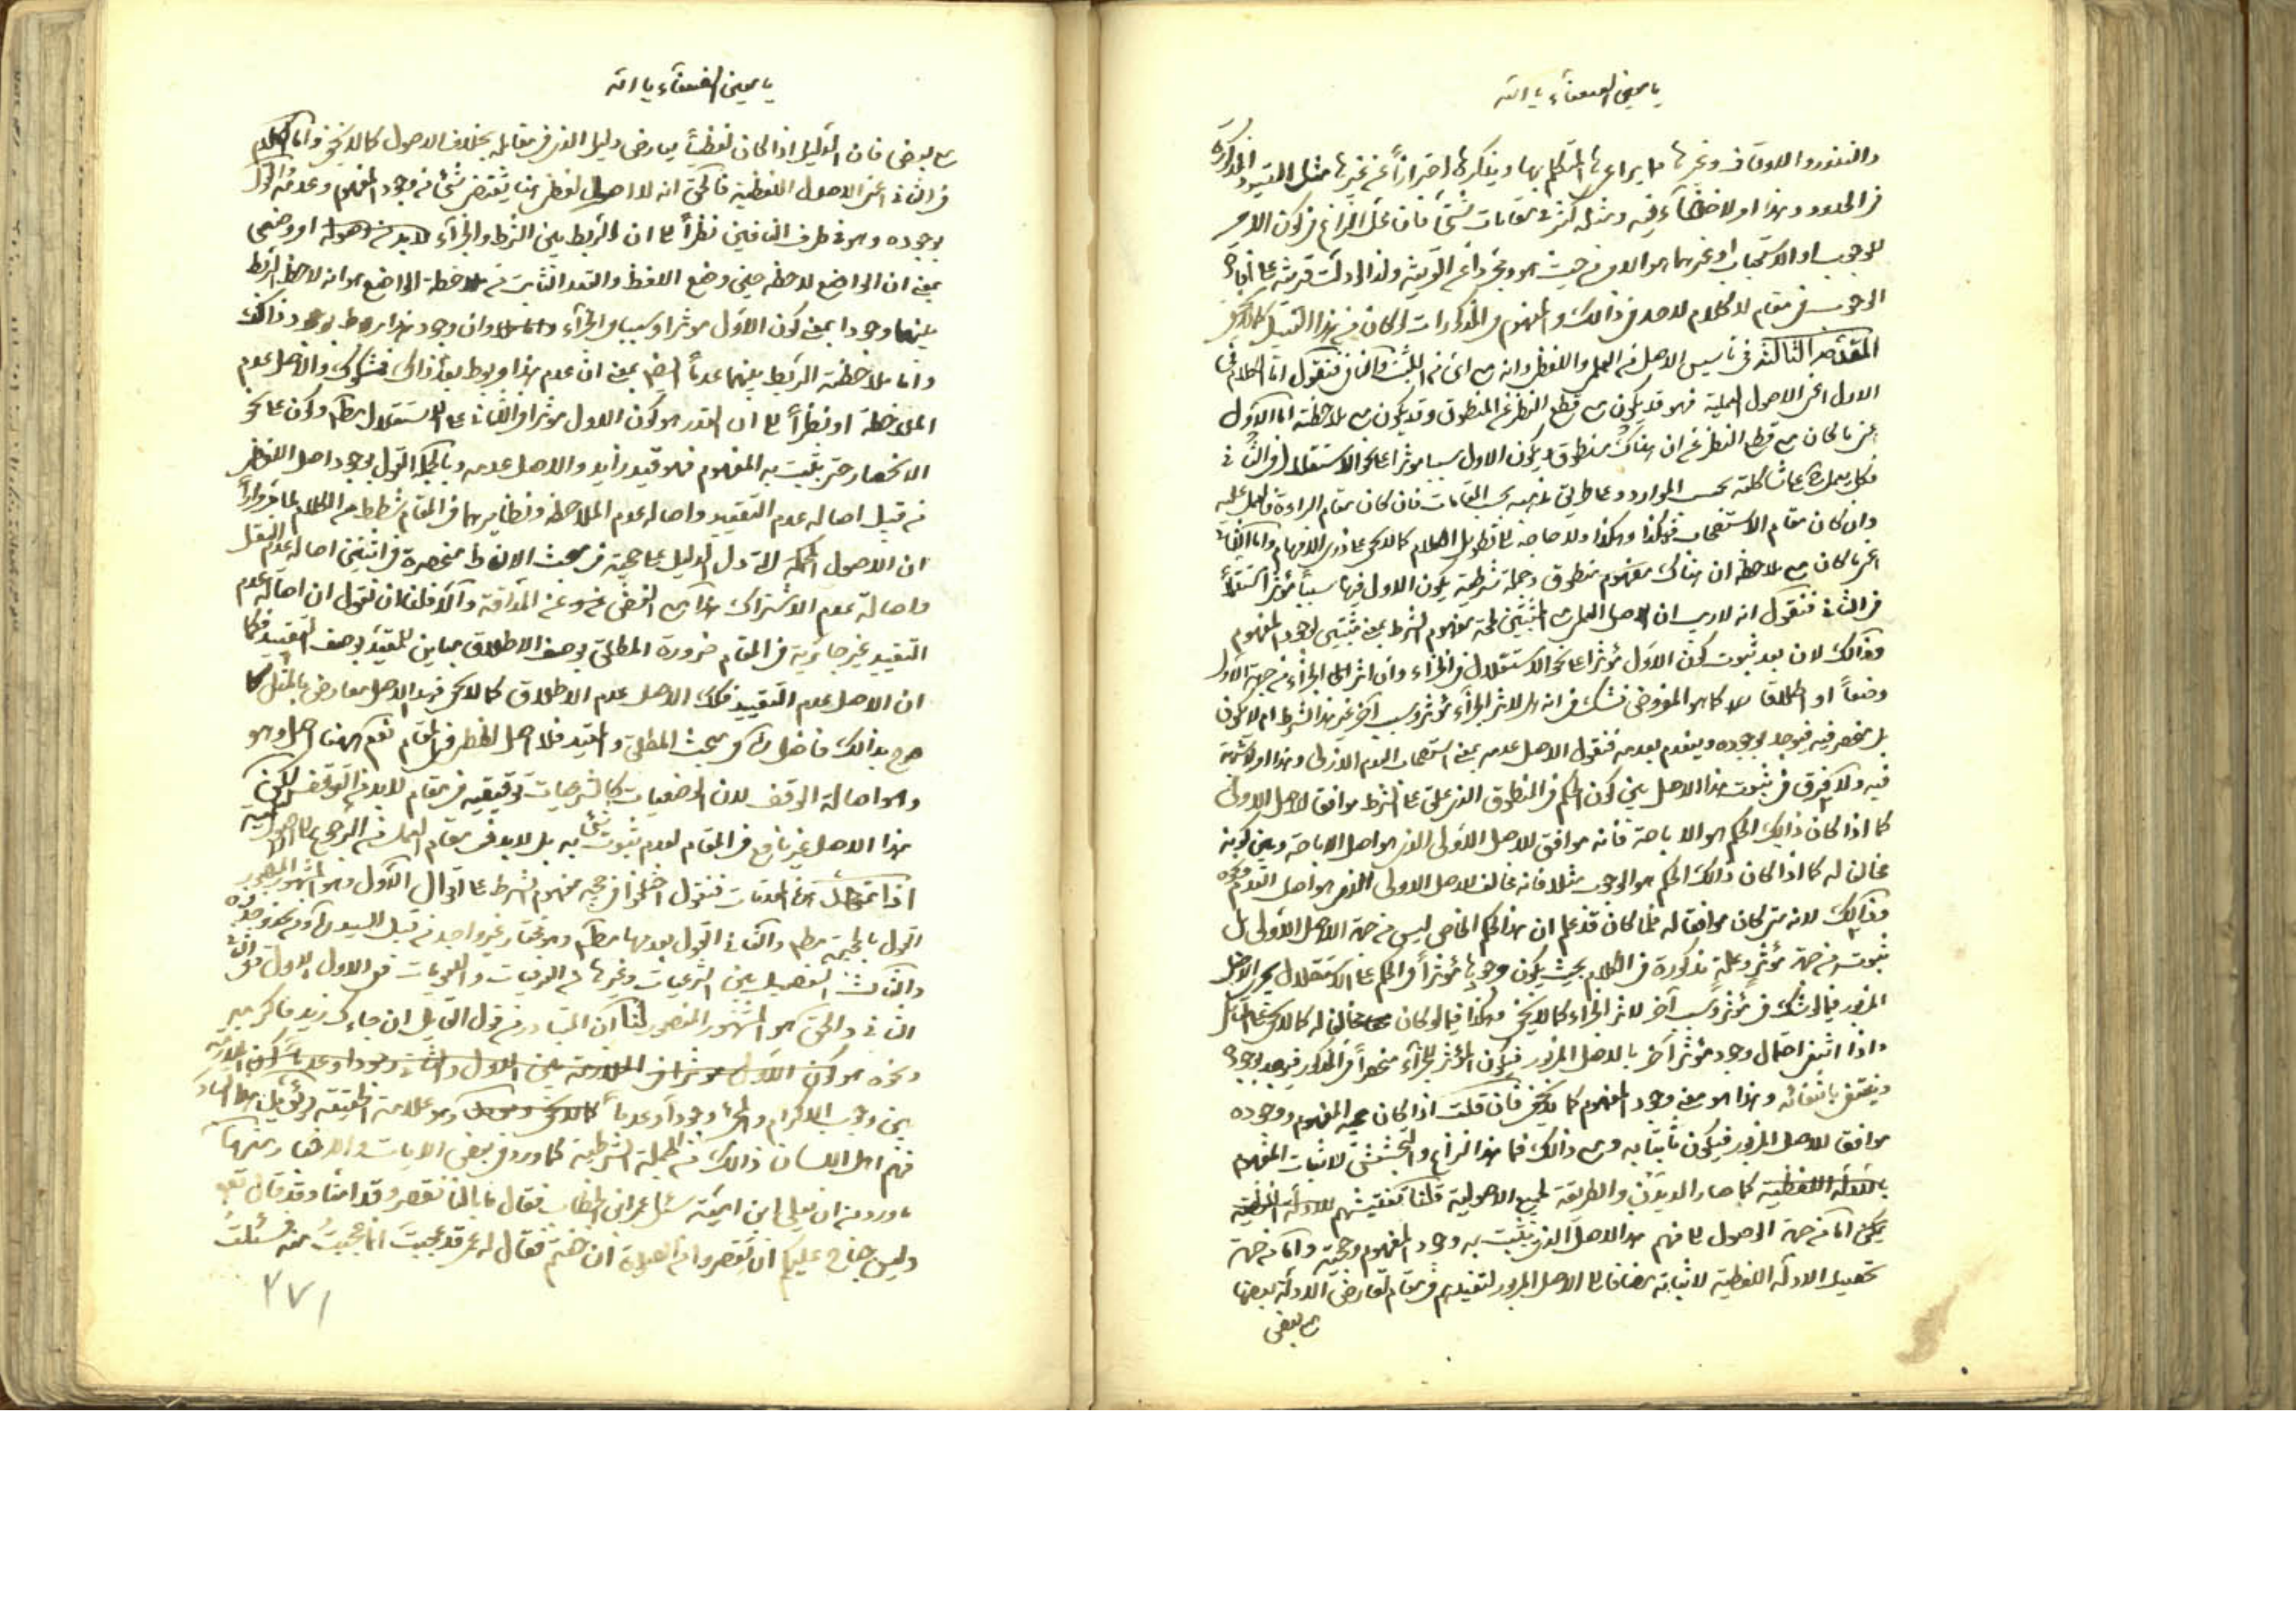 يا معين الضعفاء يا الله
والنذور والاوقاف وغيرها مما يراعيها المتكلم بها ويذكرها احترازاً عن غيرها مثل القيود المذكورة
في الحدود وهذا اولا خفاء فيه ومثله كثير في مقامات شتى فان محل النزاع في كون الامر
للوجوب او الاستحباب او غيرهما هو الامر من حيث هو ومجرداً عن القرينة ولذا لو دلت قرينة على افادة
الوجوب في مقام لا كلام لاحد في ذالك والمفهوم في المذكورات لو كان من هذا القبيل كما لا يخفى
المقدمة الثالثة في تاسيس الاصل من العملي واللفظي وانه مع اي من المثبت والنافي فنقول اما الكلام في
الاول اعني الاصول العملية فهو قد يكون مع قطع النظر عن المنطوق وقد يكون مع ملاحظته اما الاول
اعني ما كان مع قطع النظر عن ان هناك منطوق يكون الاول سببا مؤثرا على نحو الاستقلال في الثاني
فكل يعمل على شاكلته بحسب الموارد وعلى طريق مذهبه بحسب المقامات فان كان مقام البراءة فالعمل عليه
وان كان مقام الاستصحاب فهكذا وهكذا ولا حاجة الى تطويل الكلام كما لا يخفى على ذوى الافهام واما الثاني
اعني ما كان مع ملاحظة ان هناك منطوق وجملة شرطية يكون الاول فيها سببا مؤثرا مستقلاً
في الثاني فنقول انه لا ريب ان الاصل العملي مع المثبتين لحجية مفهوم الشرط بمعنى مثبتين لوجود المفهوم
وذالك لان بعد ثبوت كون الاول مؤثرا على نحو الاستقلال في الجزاء وان اثر الجزاء من جهة الاول
وضعاً او اطلاقا كما هو المفروض نشك في انه هل لاثر الجزاء مؤثر وسبب آخر غير هذا الشرط ام لا يكون
بل منحصر فيه فيوجد بوجوده وينعدم بعدمه فنقول الاصل عدمه بمعنى استصحاب العدم الازلى وهذا اولا شبهة
فيه ولا فرق في ثبوت هذا الاصل بين كون الحكم في المنطوق الذي علق على الشرط موافق للاصل الاولى
كما اذا كان ذالك الحكم هو الاباحة فانه موافق للاصل الاولى الذي هو اصل الاباحة وبين كونه
مخالف له كما اذا كان ذالك الحكم هو الوجوب مثلا فانه مخالف للاصل الاولى الذي هو اصل العدم
وذالك لانه متى كان موافقا له فلما كان قد علم ان هذا الحكم الخاص ليس من جهة الاصل الاولى بل
ثبوته من جهة مؤثر وعلة مذكورة في الكلام بحيث يكون وجودها مؤثراً في الحكم على الاستقلال يجرى الاصل
المزبور فيما لو شك في مؤثر وسبب آخر لاثر الجزاء كما لا يخفى وهكذا فيما لو كان مخالف له كما لا يخفى على المتأمل
واذا انتفى احتمال وجود مؤثر آخر بالاصل المزبور فيكون المؤثر للجزاء منحصراً في المذكور فيوجد بوجوده
وينتفى بانتفائه وهذا هو معنى وجود المفهوم كما لا يخفى فان قلت اذا كان حجية المفهوم ووجوده
موافق للاصل المزبور فيكون ثابتا به ومع ذالك فما هذا النزاع والتجشش لاثبات المفهوم
بالادلة اللفظية كما صار الديدن والطريقة لجميع الاصولية قلنا تفتيشهم للادلة اللفظية
يمكن اما من جهة الوصول الى فهم هذا الاصل الذي يثبت به وجود المفهوم وحجيته واما من جهة
تحصيل الادلة اللفظية لاثباته مضافا الى الاصل المزبور لتفيدهم في مقام تعارض الادلة بعضها
مع بعض
يا معين الضعفاء يا الله
مع بعض فان الدليل اذا كان لفظياً يعارض دليل الذي في مقابله بخلاف الاصول كما لا يخفى واما الكلام
في الثاني اعنى الاصول اللفظية فالحق انه لا اصل لفظى هنا يقتضى شئ من وجود المفهوم وعدمه والقول
بوجوده وهو في طرف النافين نظراً الى ان الربط بين الشرط والجزاء
بمعنى ان الواضع لاحظه حين وضع اللفظ والقدر الثابت من ملاحظة الواضع هو انه لاحظ الربط
بينهما وجودا بمعنى كون الاول مؤثرا وسببا في الجزاء وان وجود هذا مربوط بوجود ذالك
واما ملاحظته الربط بينهما عدماً ايضا بمعنى ان عدم هذا مربوط بعدم ذالك فمشكوك والاصل عدم
الملاحظة او نظراً الى ان القدر هو كون الاول مؤثرا في الثاني على الاستقلال مطلقا وكون على نحو
الانحصار حتى يثبت به المفهوم فهو قيد زايد والاصل عدمه وبالجملة القول بوجود اصل اللفظي
من قبيل اصالة عدم التقييد واصالة عدم الملاحظة ونظايرهما في المقام شطط من الكلام لما مر مراراً
ان الاصول المحكمة التي دل الدليل على حجيته في مبحث الالفاظ منحصرة في اثنتين اصالة عدم النقل
واصالة عدم الاشتراك هذا مع الغض عنه وعن المذاقة والا فلنا ان نقول ان اصالة عدم
التقييد غير جارية في المقام ضرورة المطلق بوصف الاطلاق مباين للمقيد بوصف التقييد فكما
ان الاصل عدم التقييد فكك الاصل عدم الاطلاق كما لا يخفى فهذا الاصل معارض بالمثل كما
صرح بذالك فاضل في مبحث المطلق والمقيد فلا اصل لفظى في المقام نعم هنا اصل وهو
وهو اصالة الوقف لان الوضعيات كالشرعيات توقيفيه في مقام لا بد من التوقف لكن
هذا الاصل غير نافع في المقام لعدم ثبوت شئ به بل لا بد في مقام العمل من الرجوع الى الاصول العملية
اذا تمهد هذه المقدمات فنقول اختلفوا في حجية مفهوم الشرط على اقوال الاول وهو المشهور المنصور
القول بالحجية مطلقا والثاني القول بعدمها مطلقا وهو مختار غير واحد من قبيل السيد
والثالث التفصيل بين الشرعيات وغيرها من العرفيات واللغويات ففى الاول الاول وفى الثاني
الثاني والحق هو المشهور المنصور لنا ان المتبادر من قول القايل ان جاءك زيد فاكرمه
ونحوه هو كون الاول مؤثرا في الملازمة بين الاول والثاني وجودا وعدماً
بين وجوب الاكرام والمجئ وجوداً وعدماً وهو علامة الحقيقة
فهم اهل اللسان ذالك من الجملة الشرطية كما ورد في بعض الايات والاخبار منها
ما ورد من ان يعلى ابن امية سئل عمر ابن الخطاب فقال ما بالنا نقصر وقد امنا وقد قال تعالى
وليس جناح عليكم ان تقصروا من الصلوة ان خفتم فقال له عمر قد عجبت انا عجبت منه فسئلت